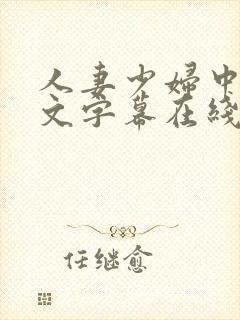 人妻少婦中
文字幕在綫
任继愈